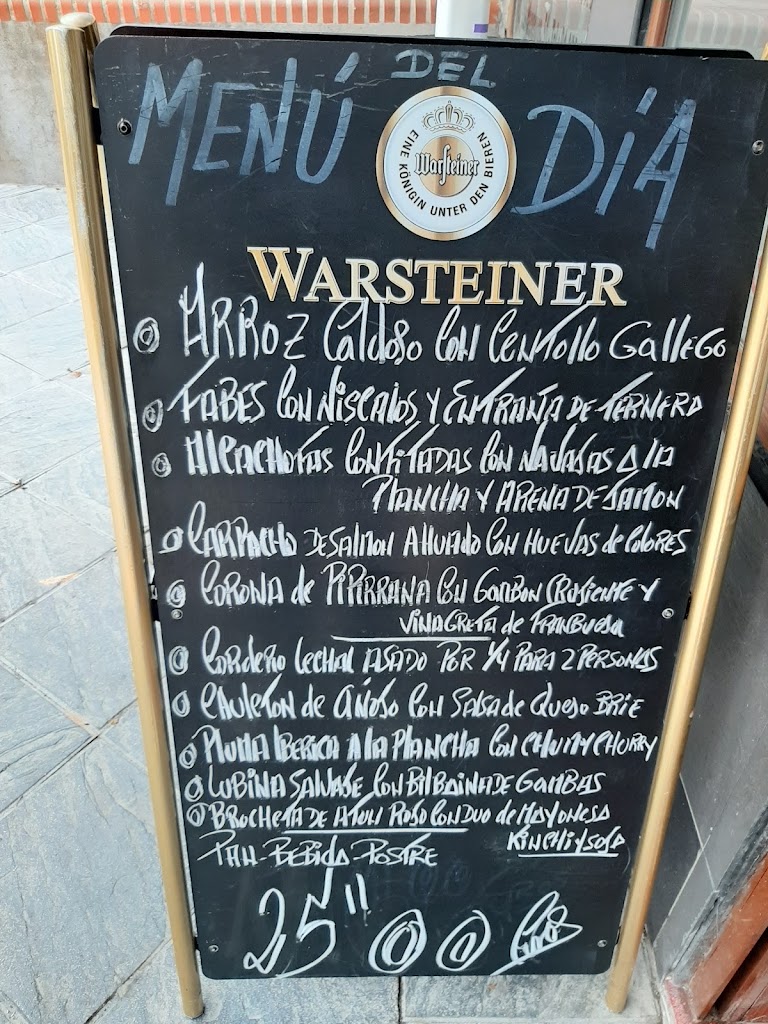 MENÚ DEL DÍA
EINE KÖNIGIN UNTER DEN BIEREN
Warsteiner
WARSTEINER
ARROZ CALDOSO CON CENTOLLO GALLEGO
FABES CON NISCALOS Y ENTRAÑA DE TERNERA
ALCACHOFAS CONFITADAS CON NAVAJAS A LA
PLANCHA Y ARENA DE JAMON
CARPACHO DE SALMON AHUMADO CON HUEVAS de COLORES
CORONA de PIPIRRANA CON GAMBON CRUJIENTE Y
VINAGRETA de FRANBUESA
CORDERO LECHAL ASADO POR 1/4 PARA 2 PERSONAS
CHULETON de AÑOJO CON SALSA de QUESO BRIE
PLUMA IBERICA A LA PLANCHA CON CHUMYCHURRY
LUBINA SALVAJE CON BILBAINA DE GAMBAS
BROCHETA DE ATUN ROJO CON DUO de MAYONESA
KINCHI Y SOJA
PAN-BEBIDA-POSTRE
25"00 €uros